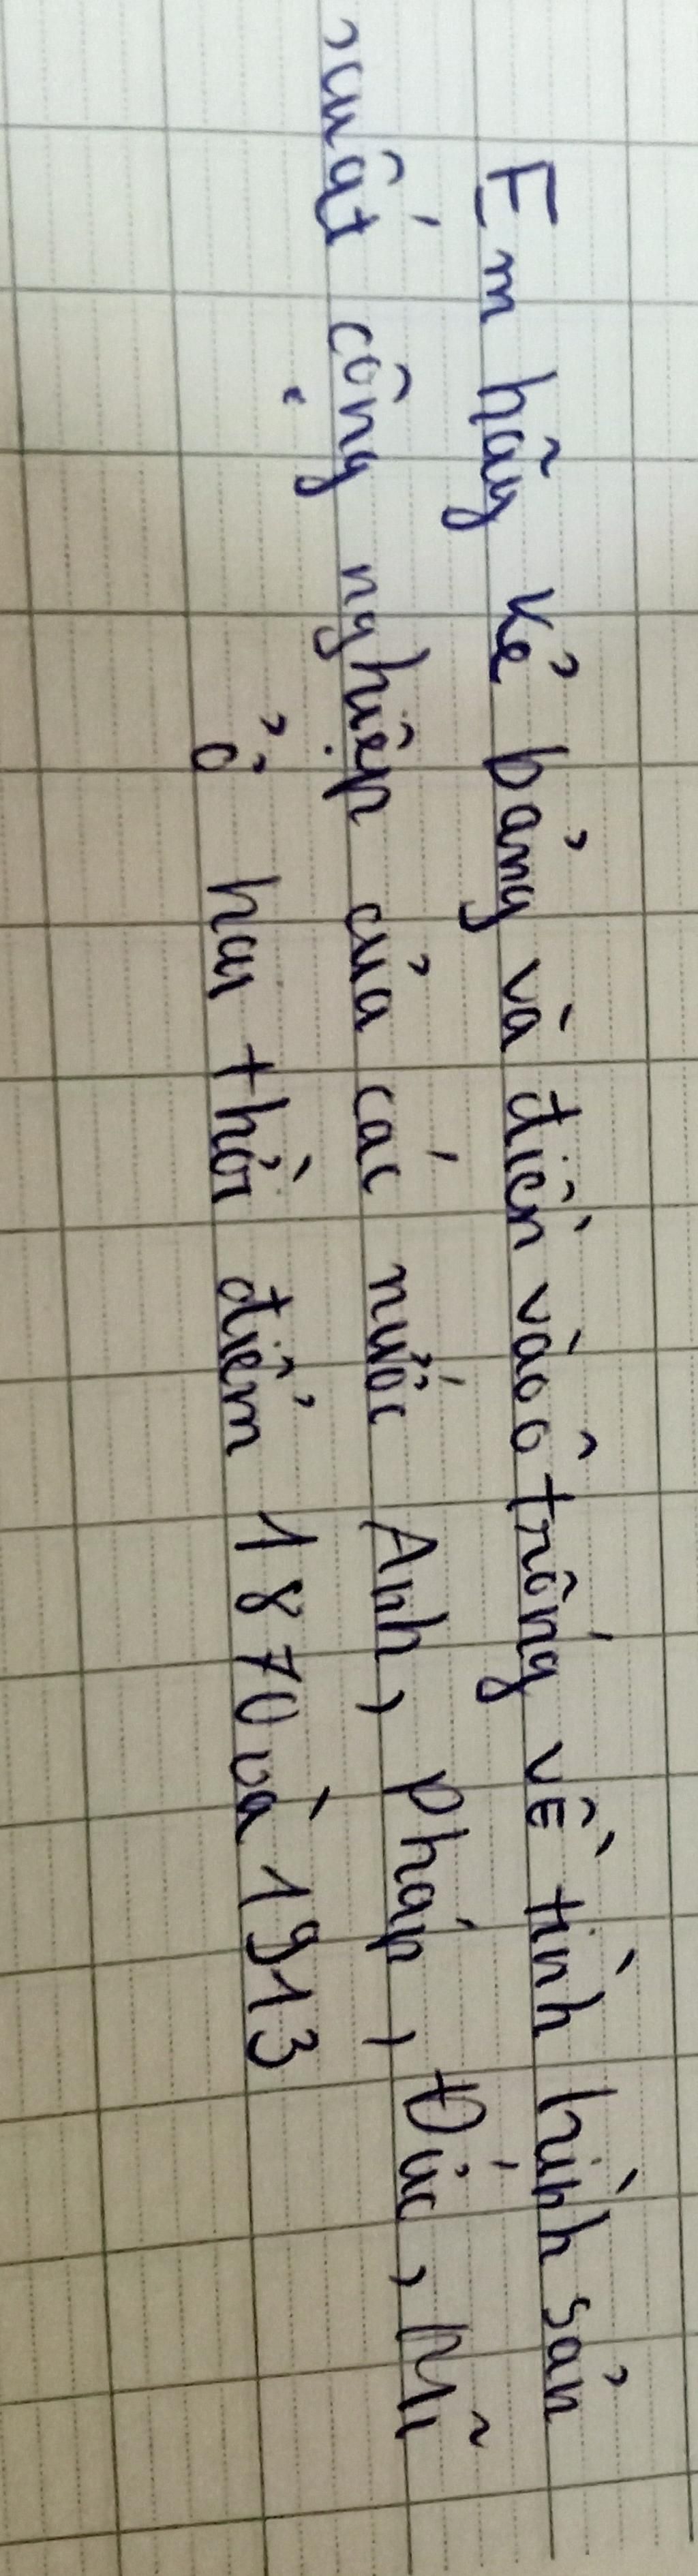 Em hãy kẻ bảng và điền vào ô trống về tình hình sản
xuất công nghiệp của các nước Anh, Pháp, Đức, Mĩ
ở hai thời điểm 1870 và 1913